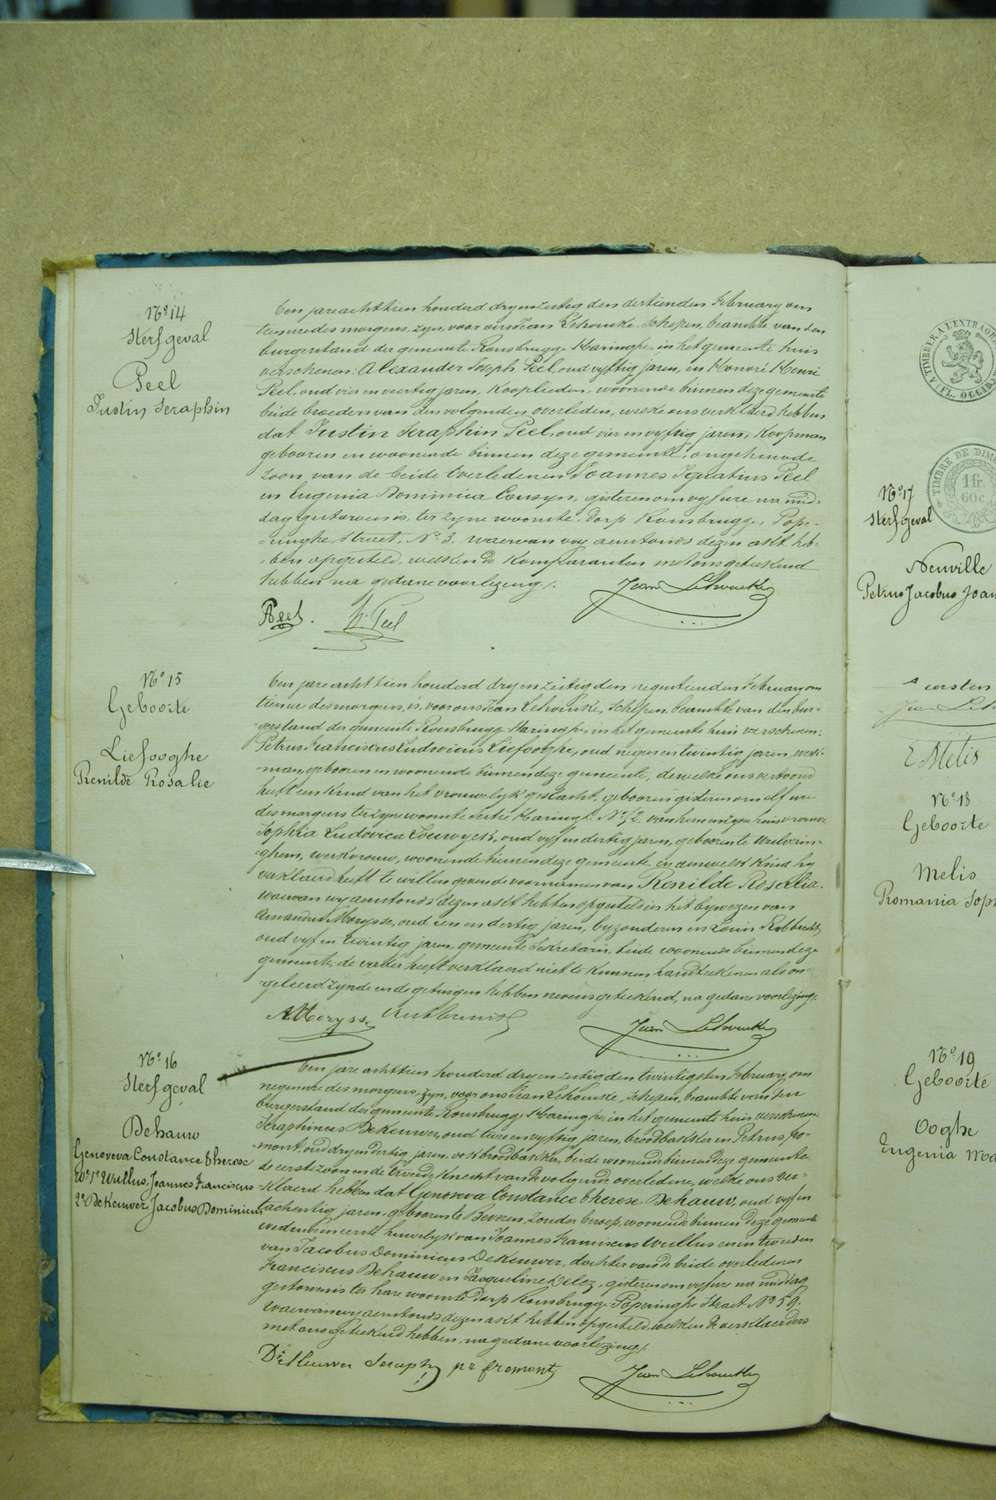 N° 14
Sterfgeval
Peel
Justin Seraphin
Een jare achttien honderd dry en zestig den dertienden February om
ure des morgens, zyn, voor ons Jean Schoucke, Schepen, beambte van den
burgerstand der gemeente Rousbrugge Haringhe, in het gemeente huis
verschenen Alexander Joseph Peel, oud vyftig jaren, en Honoré Henri
Peel, oud vier en veertig jaren, Kooplieden, woonende binnen deze gemeente
beide broeders van den volgenden overleden, welke ons verklaerd hebben
dat Justin Seraphin Peel, oud vier en vyftig jaren, Koopman
geboren en woonende binnen deze gemeente, ongehuwde
zoon van de beide overledenen Joannes Ignatius Peel
en Eugenia Dominica Cousyn, gisteren om vyf ure na mid-
dag gestorven is, ter zyne woonste, dorp Rousbrugge, Pope-
ringhe Straet, N° 3. waervan wy aenstonds dezen akt heb-
ben opgesteld, welken de Komparanten met ons geteekend
hebben na gedane voorlezing.
Peel. H. Peel Jean Schoucke
N° 15
Geboorte
Liefooghe
Renilde Rosalie
Een jare acht tien honderd dry en zestig den negentienden February om
tien ure des morgens, is, voor ons Jean Schoucke, Schepen, beambte van den bur-
gerstand der gemeente Rousbrugge Haringhe, in het gemeente huis verschenen
Petrus Franciscus Ludovicus Liefooghe, oud negen en twintig jaren, werk-
man, geboren en woonende binnen deze gemeente, dewelke ons vertoond
heeft een kind van het vrouwelyk geslacht, geboren gisteren om elf ure
des morgens te zyne woonste Sectie Haringhe N° /2. van hem en zyne huisvrouw
Sophia Ludovica Couwyck, oud vyf en dertig jaren, geboren te Wulverin-
ghem, werkvrouw, woonende binnen deze gemeente, en aen welk Kind hy
verklaerd heeft te willen geven de voornamen van Renilde Rosalia.
waervan wy aenstonds dezen akt hebben opgesteld in het bywezen van
Amandus Meryssе, oud een en dertig jaren, byzonderen en Louis Rubbrecht
oud vyf en twintig jaren, gemeente Secretaris, beide woonende binnen deze
gemeente, de vader heeft verklaerd niet te kunnen handteekenen als on-
geleerd zynde en de getuigen hebben nevens geteekend, na gedane voorlezinge
A Merysse Jean Schoucke
N° 16
Sterfgeval
Dehauw
Genoveva Constance Therese
We 1° Wullus, Joannes Franciscus
2° DeKeuwer, Jacobus Dominicus
Een jare achttien honderd dry en zestig den twintigsten February, om
negen ure des morgens, zyn, voor ons Jean Schoucke, Schepen, beambte van den
burgerstand der gemeente Rousbrugge Haringhe, in het gemeente huis verschenen
Seraphinus DeKeuwer, oud twee en vyftig jaren, broodbakker en Petrus Fro-
mont, oud dry en dertig jaren, ook broodbakker, beide woonende binnen deze gemeente
de eerste zoon en de tweede Knecht van de volgende overledene, welke ons ver-
klaerd hebben dat Genoveva Constance Therese Dehauw, oud vyf en
tachentig jaren, geboren te Beveren, zonder beroep, woonende binnen deze gemeente
weduwe in eerste huwelyk van Joannes Franciscus Wullus en in tweeden
van Jacobus Dominicus DeKeuwer, dochter van de beide overledenen
Franciscus Dehauw en Jacqueline Delez, gisteren om vyf ure na middag
gestorven is te hare woonste Dorp Rousbrugge Poperinghe Straet N° 59.
waervan wy aenstonds dezen akt hebben opgesteld, welken de verklaerders
met ons geteekend hebben, na gedane voorlezing
DeKeuwer Seraph, pr fromont Jean Schoucke
N° 17
Sterfgeval
Neuville
Petrus Jacobus Joan
eersten
E Melis
N° 18
Geboorte
Melis
Romania Soph
N° 19
Geboorte
Ooghe
Eugenia
TIMBRE DE DIM
1 fr.
60 c.